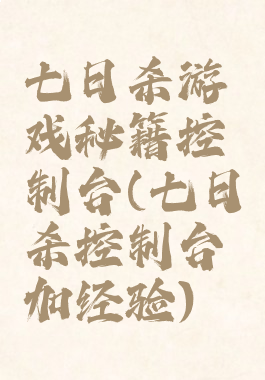 七日杀游
戏秘籍控
制台(七日
杀控制台
加经验)